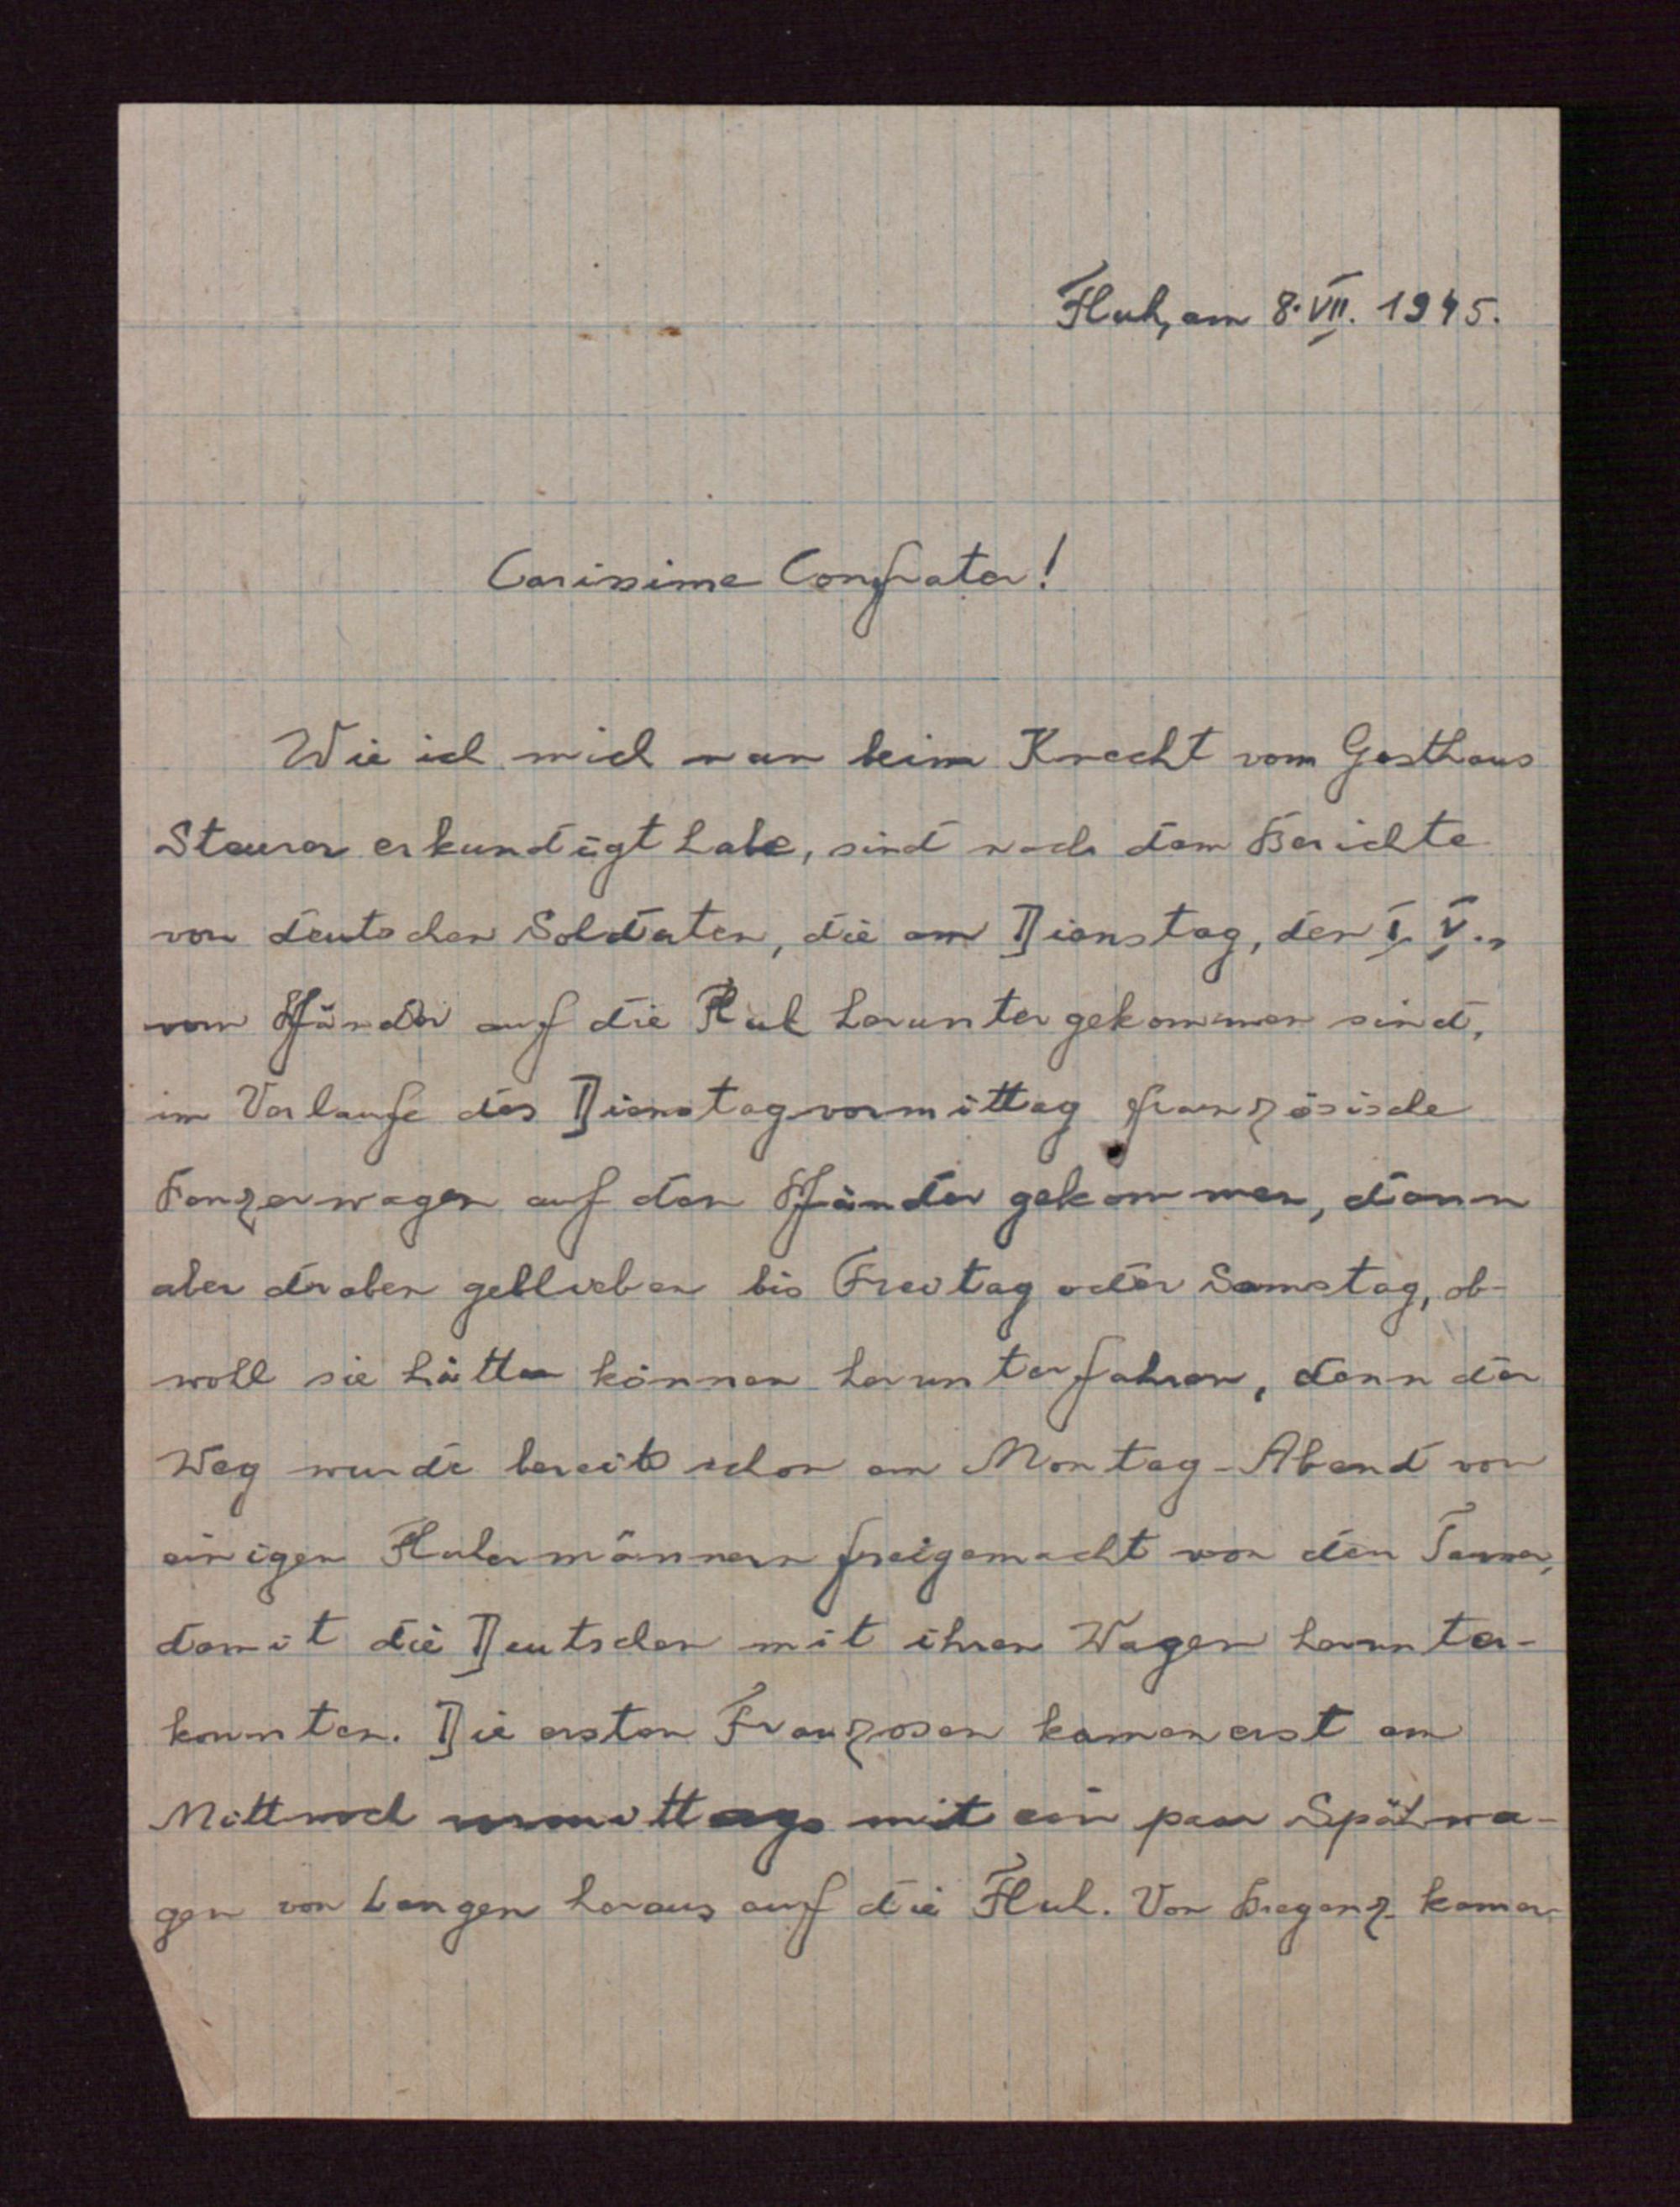 Fluh, am 8. VII. 1945.
Carissime Confrater!
Wie ich mich nun beim Knecht vom Gasthaus
Steurer erkundigt habe, sind nach dem Berichte
von deutschen Soldaten, die am Dienstag, den I. V.,
vom Pfänder auf die Fluh heruntergekommen sind,
im Verlaufe des Dienstagvormittag französische
Panzerwagen auf den Pfänder gekommen, dann
aber droben geblieben bis Freitag oder Samstag, ob-
wohl sie hätten können herunterfahren, denn der
Weg wurde bereits schon am Montag-Abend von
einigen Fluhermännern freigemacht von den Tannen,
damit die Deutschen mit ihren Wagen herunter-
konnten. Die ersten Franzosen kamen erst am
Mittwoch vormittags mit ein paar Spähwa-
gen von Langen heraus auf die Fluh. Von Bregenz kamen